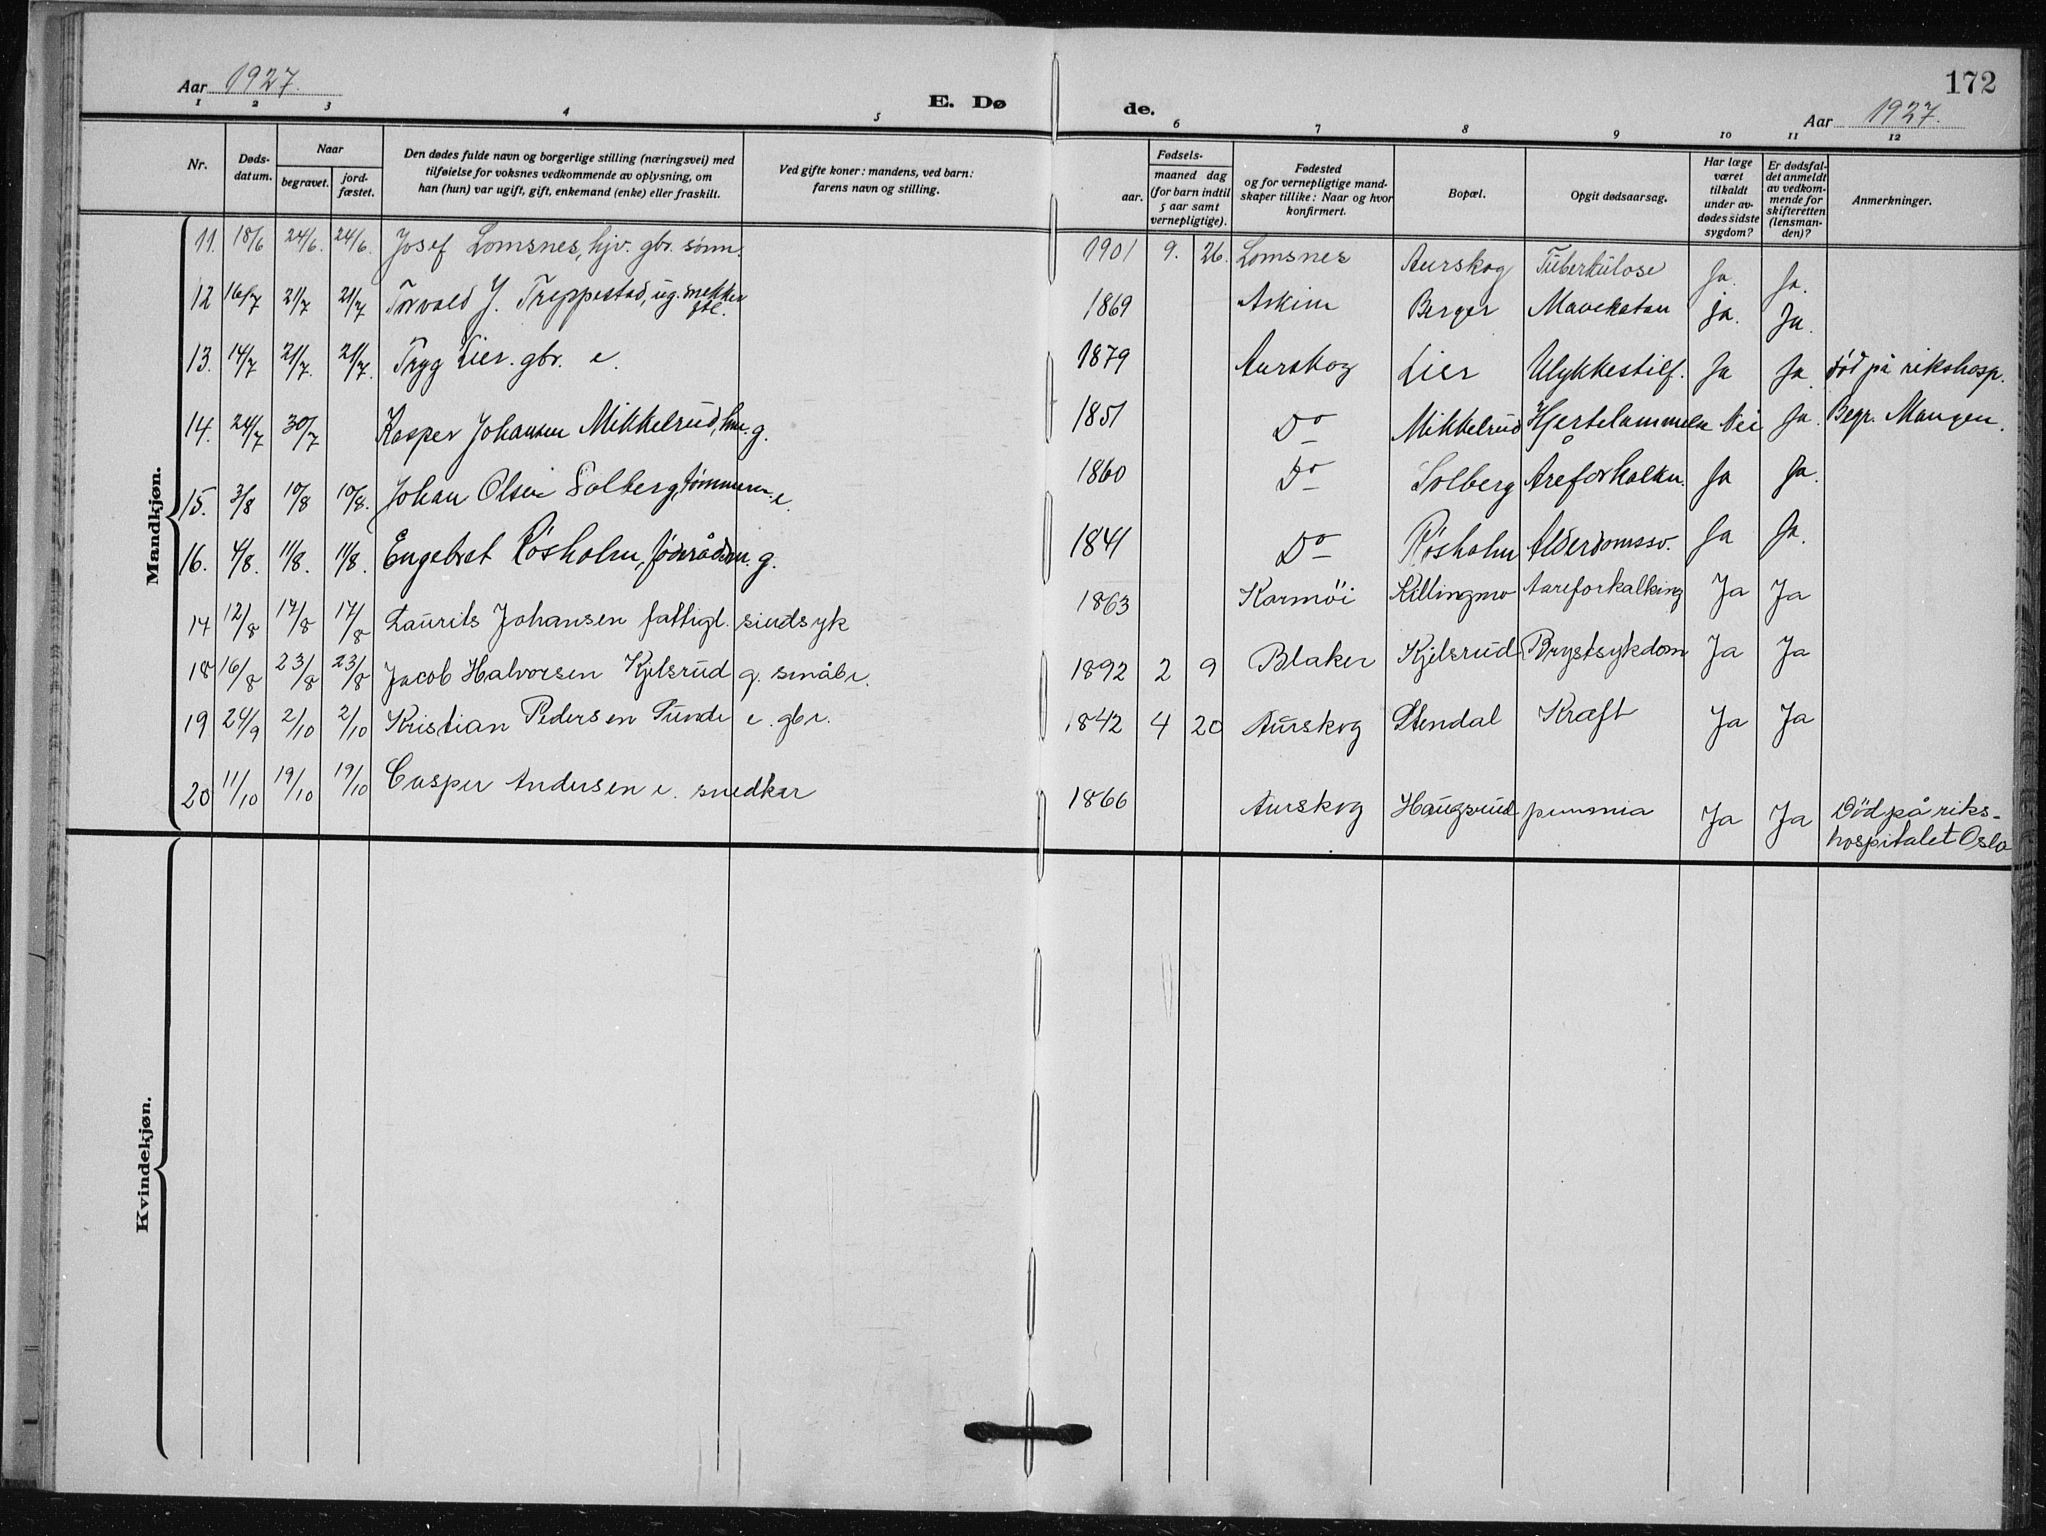 172
Aar 1927.
E. Dø de.
Aar 1927.
1 2 3 4 5 6 7 8 9 10 11 12
Nr.
Døds-
datum.
Naar
begravet.
jord-
fæstet.
Den dødes fulde navn og borgerlige stilling (næringsvei) med
tilføielse for voksnes vedkommende av oplysning, om
han (hun) var ugift, gift, enkemand (enke) eller fraskilt.
Ved gifte koner: mandens, ved barn:
farens navn og stilling.
Fødsels-
aar.
maaned dag
(for barn indtil
5 aar samt
vernepligtige).
Fødested
og for vernepligtige mand-
skaper tillike: Naar og hvor
konfirmert.
Bopæl.
Opgit dødsaarsag.
Har læge
været
tilkaldt
under av-
dødes sidste
sygdom?
Er dødsfal-
det anmeldt
av vedkom-
mende for
skifteretten
(lensman-
den)?
Anmerkninger.
Mandkjøn.
11. 18/6 24/6. 24/6. Josef Lomsnes, hjv. gbr. sønn. 1901 9. 26. Lomsnes Aurskog Tuberkulose Ja. Ja.
12 16/7 21/7 21/7 Torvald J. Treppestad, ug. 1869 Askim Berger ja. Ja.
13. 14/7 21/7. 21/7. Tryg Lier. gbr. e. 1879 Aurskog Lier Ulykkestilf. Ja Ja. død på rikshosp.
14. 24/7 30/7 Kasper Johansen Mikkelrud, hm. g. 1851 Do Mikkelrud Hjertelammelse Nei Ja. Begr. Mangen.
15. 3/8 10/8 10/8. Johan Olsen Solberg, tømmerm. e. 1860 Do Solberg Areforkalkn. Ja Ja.
16. 4/8. 11/8. 11/8. Engebret Røsholm, føderådsm. g. 1841 Do Røsholm Alderdomssv. Ja Ja.
17 12/8 17/8 17/8 Laurits Johansen fattigl. sindsyk 1863 Karmöi Killingmo Aareforkalking Ja Ja
18 16/8 23/8 23/8 Jacob Halvorsen Kjelsrud g. småbr. 1892 2 9 Blaker Kjelsrud Brystsykdom Ja Ja
19 24/9 2/10 2/10 Kristian Pedersen Tunde e. gbr. 1842 4 20 Aurskog Stendal Kræft Ja Ja
20 11/10 19/10 19/10 Casper Andersen e. snedker 1866 Aurskog Haugsrud Ja Ja Död på riks-
hospitalet Oslo
Kvindekjøn.